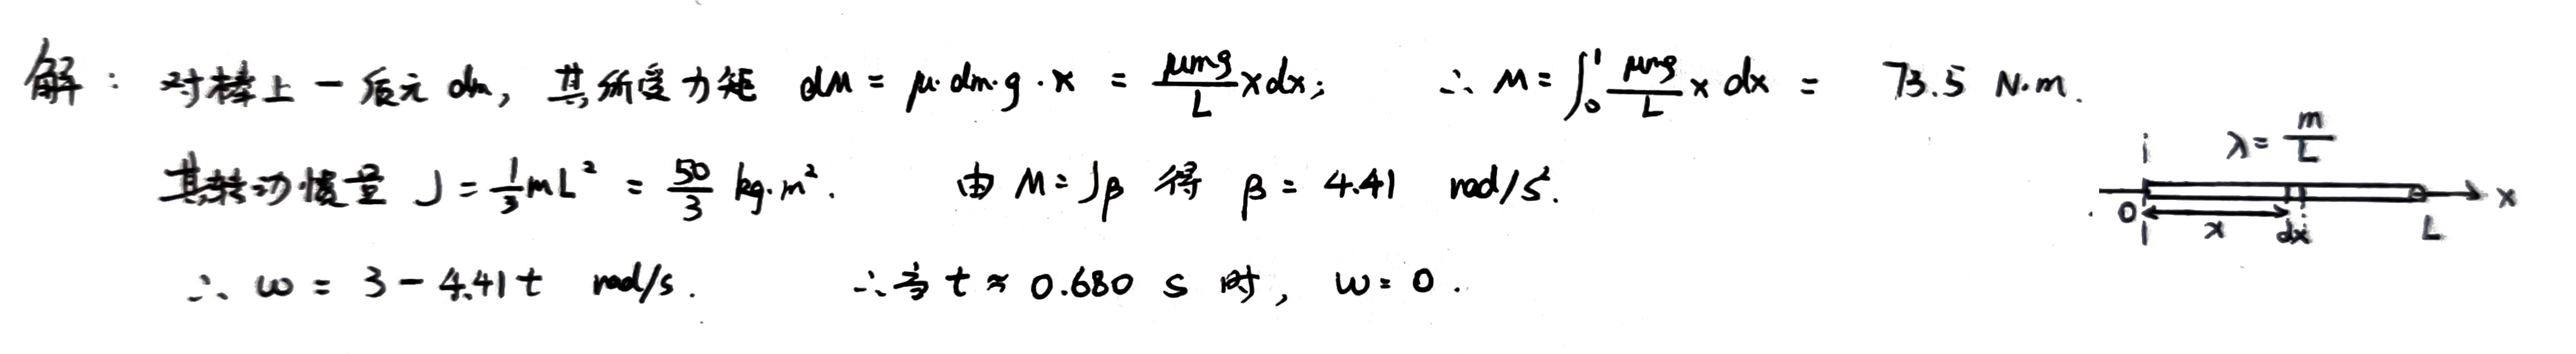 解： 对棒上一质元 dm, 其所受力矩 dM = μ·dm·g·x = μmg/L xdx; ∴ M = ∫₀¹ μmg/L x dx = 73.5 N·m.
λ = m/L
其转动惯量 J = 1/3 mL² = 50/3 kg·m². 由 M = Jβ 得 β = 4.41 rad/s².
O x dx L x
∴ ω = 3 - 4.41t rad/s. ∴当 t ≈ 0.680 s 时, ω = 0.